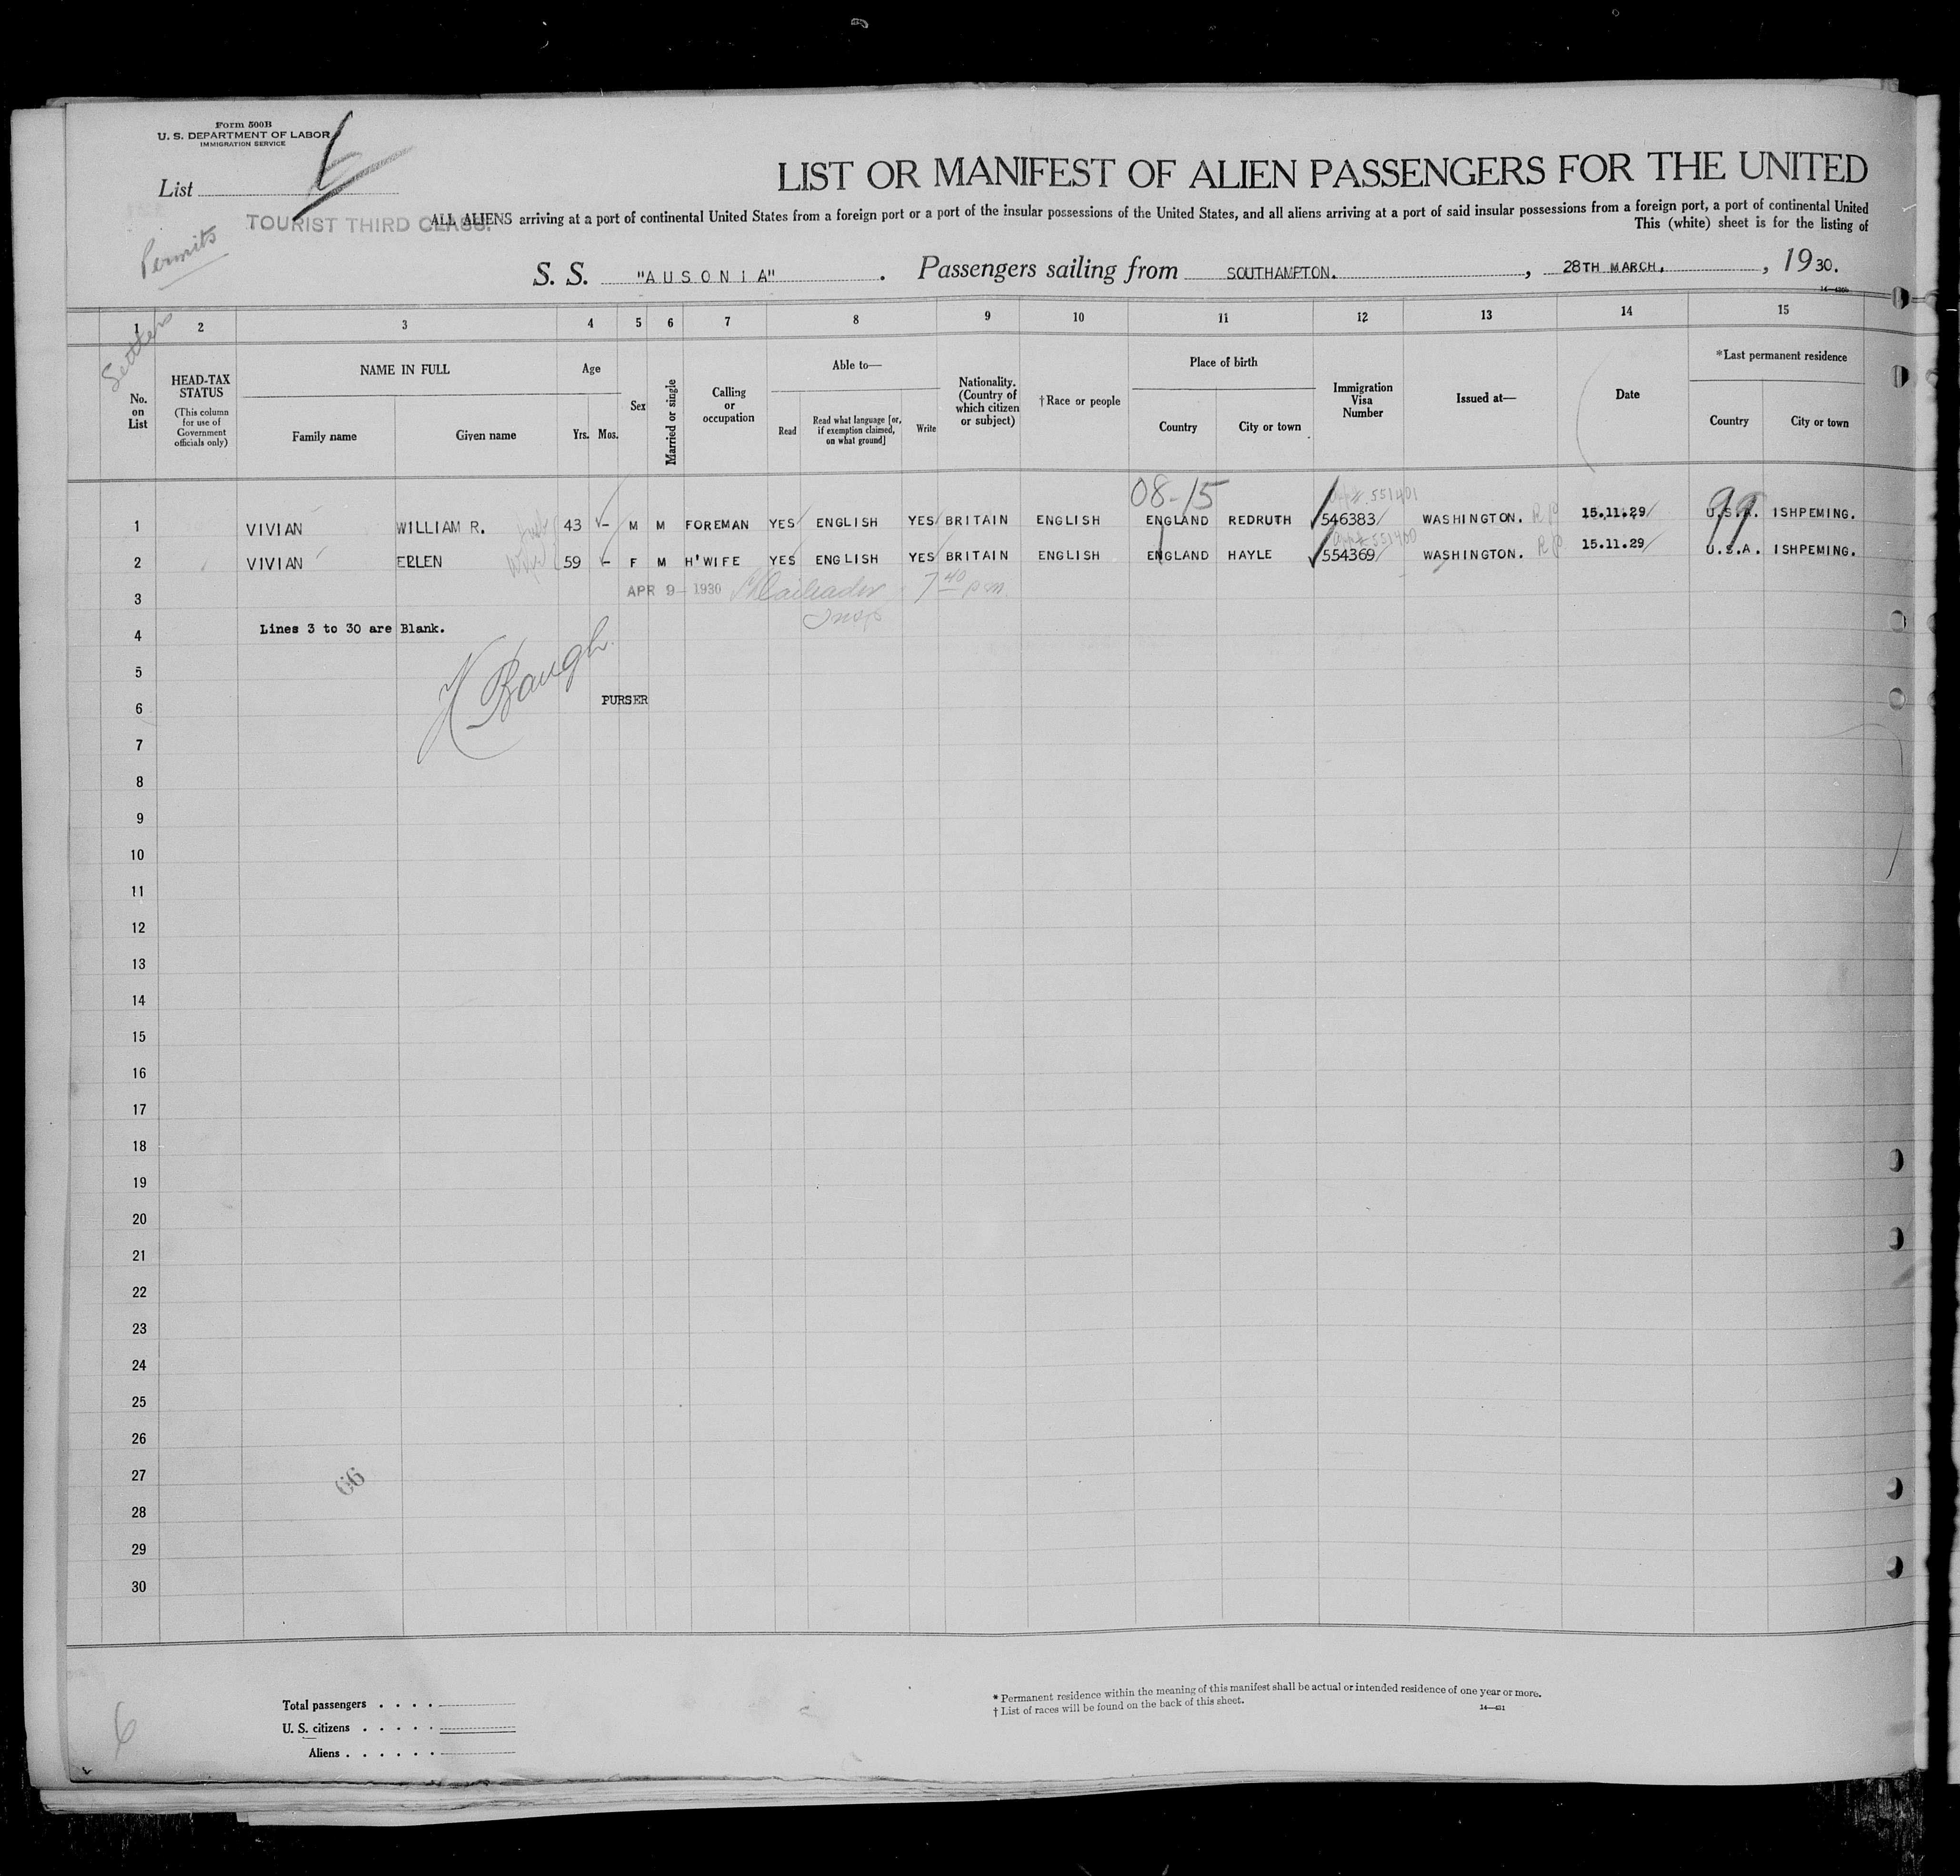 Form 500B
U. S. DEPARTMENT OF LABOR
IMMIGRATION SERVICE
List
6
TOURIST THIRD CLASS.
Permits
Settlers
LIST OR MANIFEST OF ALIEN PASSENGERS FOR THE UNITED
ALL ALIENS arriving at a port of continental United States from a foreign port or a port of the insular possessions of the United States, and all aliens arriving at a port of said insular possessions from a foreign port, a port of continental United
This (white) sheet is for the listing of
S. S. "AUSONIA" . Passengers sailing from SOUTHAMPTON. , 28TH MARCH. , 1930.
1 2 3 4 5 6 7 8 9 10 11 12 13 14 15
No. on List
HEAD-TAX STATUS (This column for use of Government officials only)
NAME IN FULL
Family name Given name
Age
Yrs. Mos.
Sex
Married or single
Calling or occupation
Able to—
Read Read what language [or, if exemption claimed, on what ground] Write
Nationality. (Country of which citizen or subject)
†Race or people
Place of birth
Country City or town
Immigration Visa Number
Issued at—
Date
*Last permanent residence
Country City or town
08-15 551401 99
1 VIVIAN WILLIAM R. 43 – M M FOREMAN YES ENGLISH YES BRITAIN ENGLISH ENGLAND REDRUTH 546383 WASHINGTON. RP 15.11.29 U.S.A. ISHPEMING.
551400
2 VIVIAN ELLEN Wife 59 – F M H'WIFE YES ENGLISH YES BRITAIN ENGLISH ENGLAND HAYLE 554369 WASHINGTON. RP 15.11.29 U.S.A. ISHPEMING.
3 APR 9 – 1930 7 40 pm
Insp
4 Lines 3 to 30 are Blank.
5 H Baugh
6 PURSER
7
8
9
10
11
12
13
14
15
16
17
18
19
20
21
22
23
24
25
26
27 66
28
29
30
Total passengers . . . .
U. S. citizens . . . . .
Aliens . . . . . .
6
* Permanent residence within the meaning of this manifest shall be actual or intended residence of one year or more.
† List of races will be found on the back of this sheet.
14—431